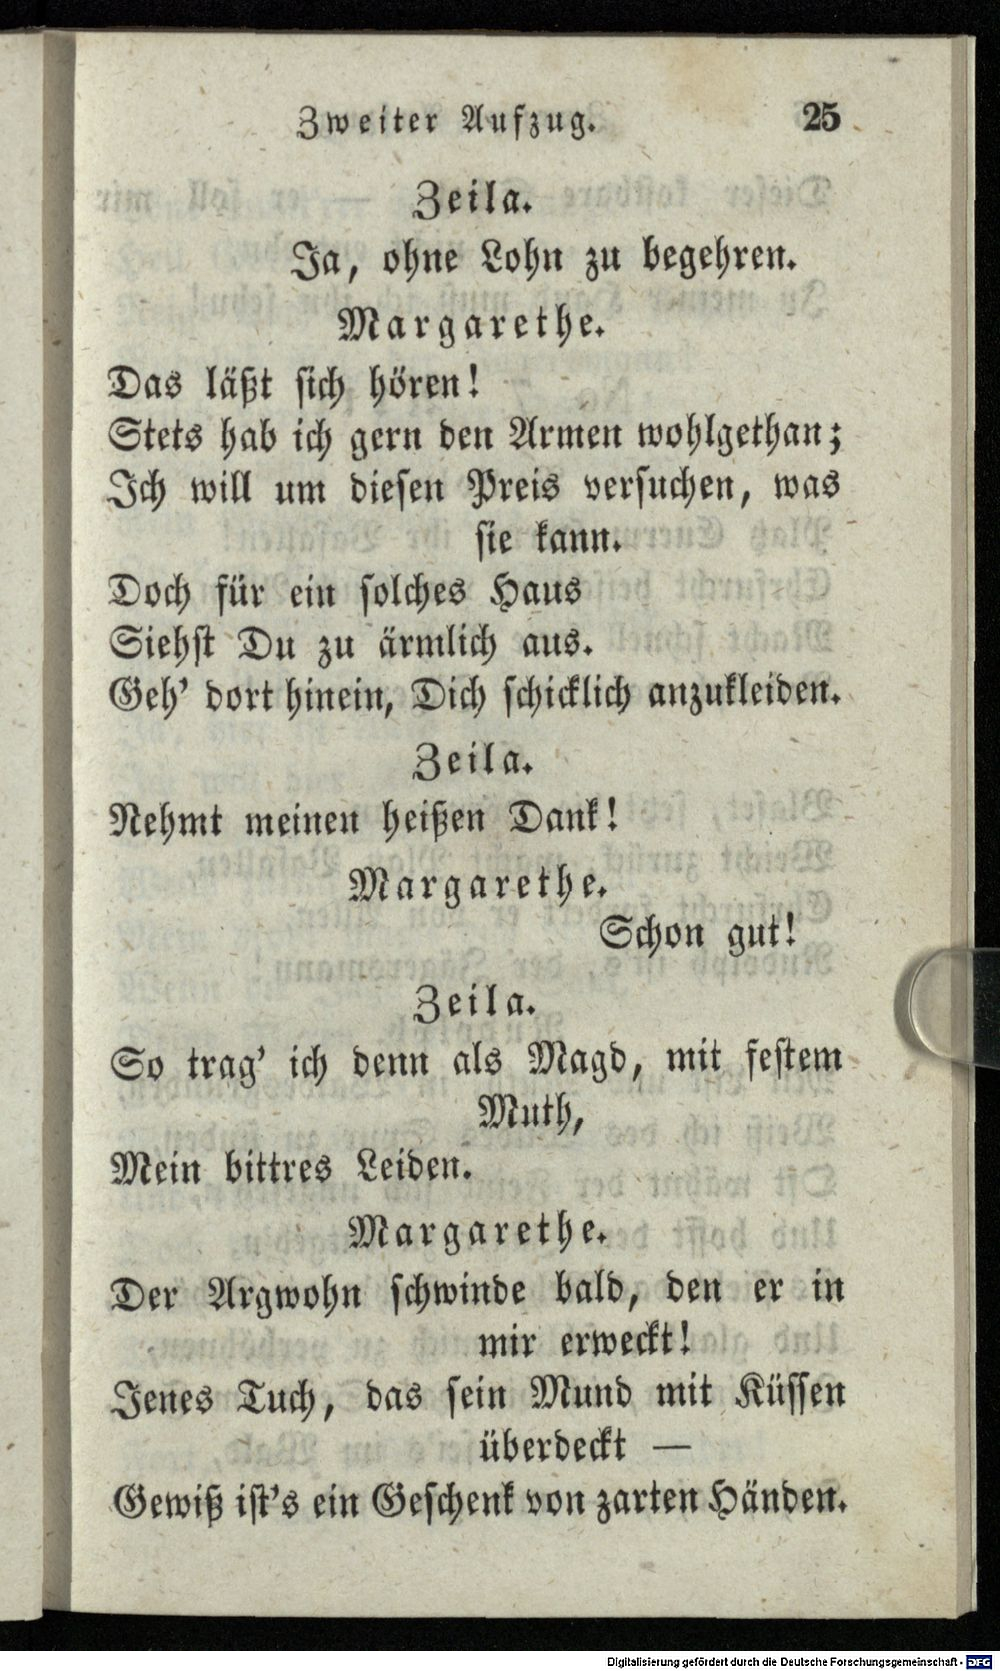 Zweiter Aufzug. 25
Zeila.
Ja, ohne Lohn zu begehren.
Margarethe.
Das läßt sich hören!
Stets hab ich gern den Armen wohlgethan;
Ich will um diesen Preis versuchen, was
sie kann.
Doch für ein solches Haus
Siehst Du zu ärmlich aus.
Geh' dort hinein, Dich schicklich anzukleiden.
Zeila.
Nehmt meinen heißen Dank!
Margarethe.
Schon gut!
Zeila.
So trag' ich denn als Magd, mit festem
Muth,
Mein bittres Leiden.
Margarethe.
Der Argwohn schwinde bald, den er in
mir erweckt!
Jenes Tuch, das sein Mund mit Küssen
überdeckt —
Gewiß ist's ein Geschenk von zarten Händen.
Digitalisierung gefördert durch die Deutsche Forschungsgemeinschaft - DFG